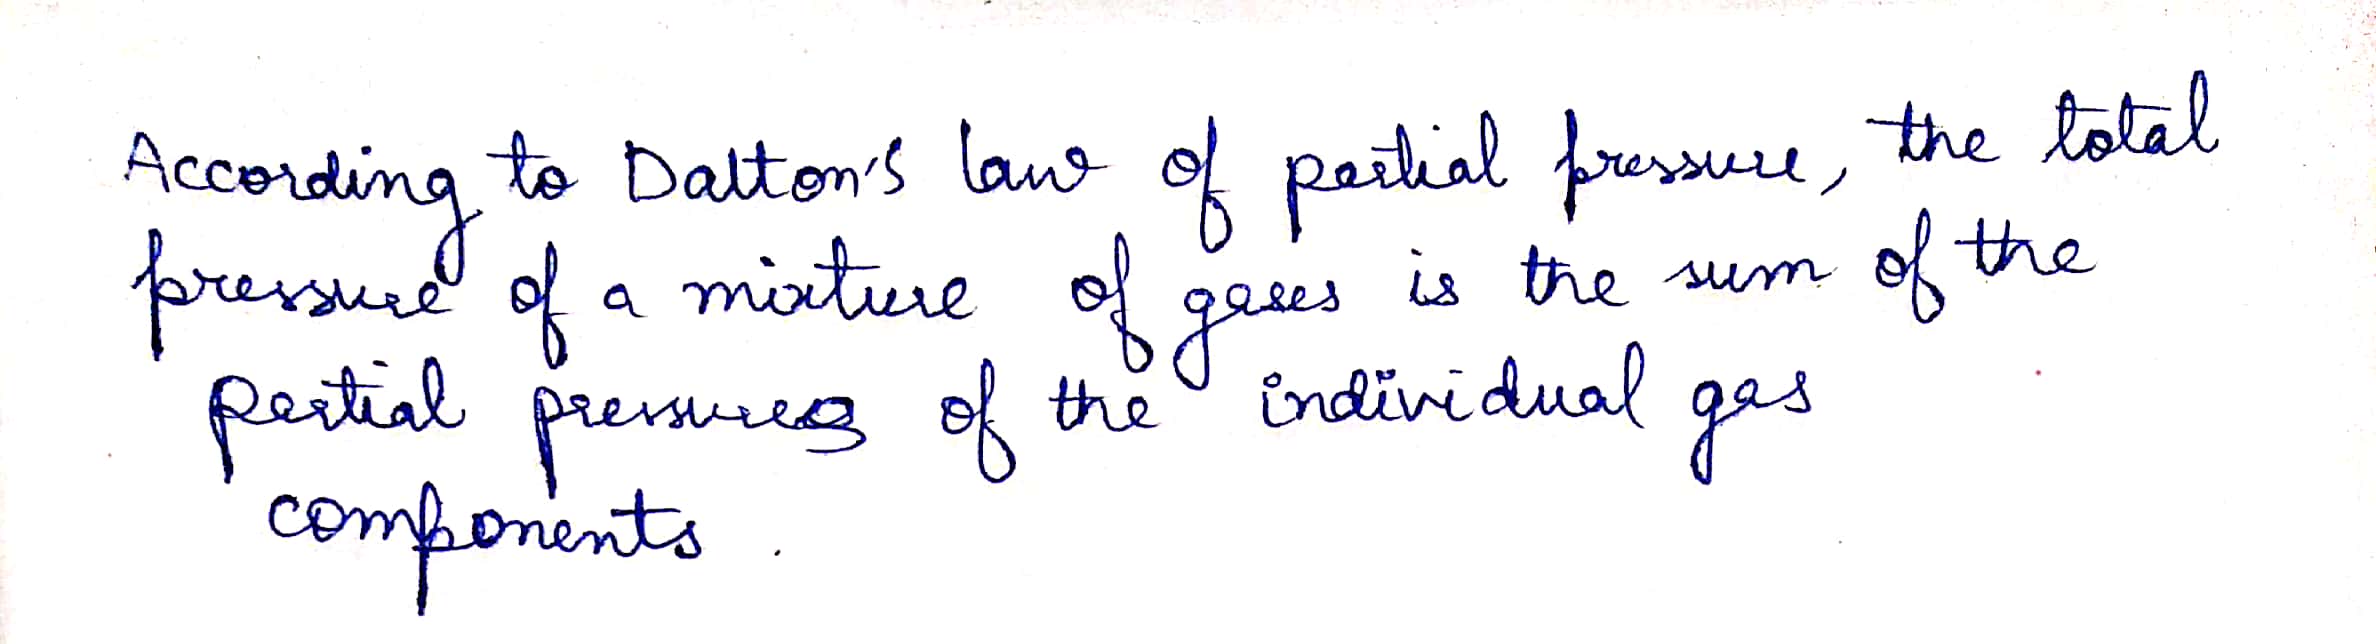 According to Dalton's law of partial pressure, the total
pressure of a mixture of gases is the sum of the
partial pressures of the individual gas
components.